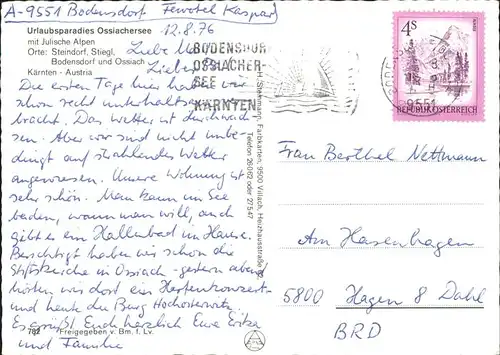 A-9551 Bodensdorf Feriotel Kaspar
12.8.76
Urlaubsparadies Ossiachersee
mit Julische Alpen
Orte: Steindorf, Stiegl,
Bodensdorf und Ossiach
Kärnten - Austria
Liebe
Lieber
Die ersten Tage hier haben wir
schon recht unterhaltsam ver-
bracht. Das Wetter ist durchwach-
sen. Aber wir sind nicht unbe-
dingt auf strahlendes Wetter
angewiesen. Unsere Wohnung ist
sehr schön. Man kann im See
baden, wann man will, auch
gibt es ein Hallenbad im Hause.
Besichtigt haben wir schon die
Stiftskirche in Ossiach - gestern abend
hörten wir dort ein Harfenkonzert -
und heute die Burg Hochosterwitz
Es grüßt Euch herzlich Eure Erika
und Familie
782 Freigegeben v. Bm. f. Lv.
H. Stettmann, Farbkarten, 9500 Villach, Heizhausstraße
Telefon 26062 oder 27547
BODENSDORF
OSSIACHER-
SEE
KÄRNTEN
9551
4S
REPUBLIK ÖSTERREICH
Frau Berthel Nettmann
Am Hasenhagen
5800 Hagen 8 Dahl
BRD